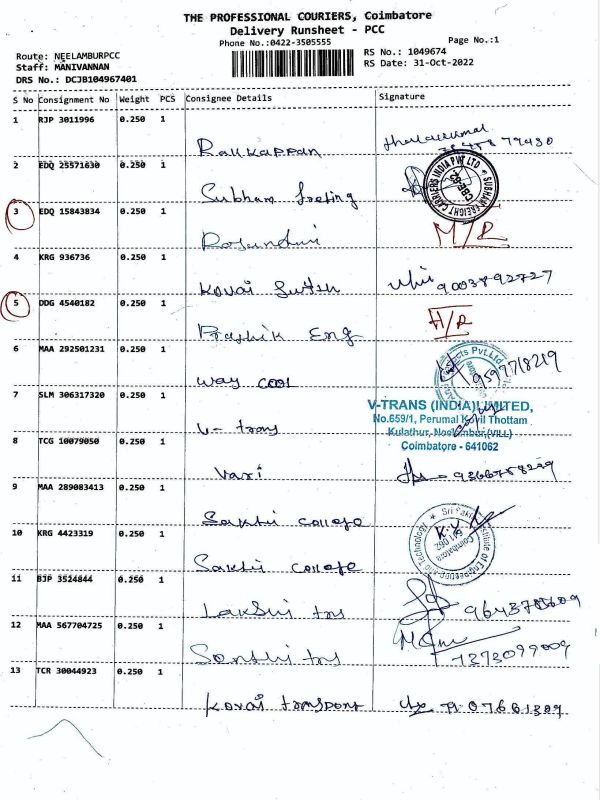 THE PROFESSIONAL COURIERS, Coimbatore
Delivery Runsheet - PCC
Phone No.:0422-3505555
Page No.:1
Route: NEELAMBURPCC
RS No.: 1049674
Staff: MANIVANNAN
RS Date: 31-Oct-2022
DRS No.: DCJB104967401
S No Consignment No Weight PCS Consignee Details Signature
1 RJP 3011996 0.250 1
Rakkappan
2 EDQ 25571630 0.250 1
Subham
SUBHAM FREIGHT CARRIERS INDIA PVT LTD
CBE-62
3 EDQ 15843834 0.250 1
M/R
4 KRG 936736 0.250 1
Kovai 9003892727
5 DDG 4540182 0.250 1
Prashik Eng
6 MAA 292501231 0.250 1
way cool 9597718219
Pvt.Ltd
7 SLM 306317320 0.250 1
V- trans
V-TRANS (INDIA) LIMITED,
No.659/1, Perumal Kovil Thottam
Kulathur, Neelambur,(VILL)
Coimbatore - 641062
8 TCG 10079050 0.250 1
Vaxi
9 MAA 289083413 0.250 1
Sakthi college
10 KRG 4423319 0.250 1
Sakthi college
Coimbatore
641 062
11 BJP 3524844 0.250 1
Lakshi trs
12 MAA 567704725 0.250 1
Santhi trs 7373099009
13 TCR 30044923 0.250 1
Kovai transport